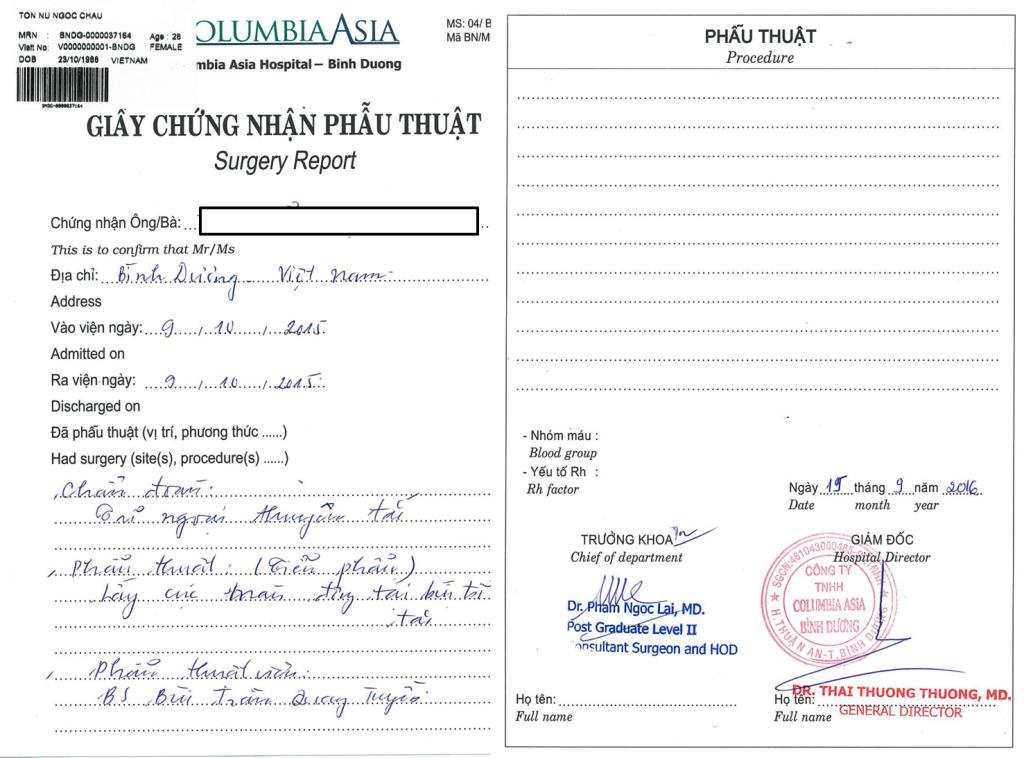 TON NU NGOC CHAU
MRN : BNDG-0000037164 Age : 28
Visit No: V0000000001-BNDG FEMALE
DOB 23/10/1988 VIETNAM
OLUMBIA ASIA
mbia Asia Hospital – Binh Duong
MS: 04/ B
Mã BN/M
GIẤY CHỨNG NHẬN PHẪU THUẬT
Surgery Report
Chứng nhận Ông/Bà:
This is to confirm that Mr/Ms
Địa chỉ: Bình Dương - Việt Nam
Address
Vào viện ngày: 9 / 10 / 2015
Admitted on
Ra viện ngày: 9 / 10 / 2015
Discharged on
Đã phẫu thuật (vị trí, phương thức ......)
Had surgery (site(s), procedure(s) ......)
Chẩn đoán:
Trĩ ngoại thuyên tắc
Phẫu thuật: (Tiểu phẫu)
Lấy cục máu đông tại búi trĩ
tắc
Phẫu thuật viên:
BS Bùi Trần Quang Tuyến
PHẪU THUẬT
Procedure
- Nhóm máu :
Blood group
- Yếu tố Rh :
Rh factor
Ngày 19 tháng 9 năm 2016
Date month year
TRƯỞNG KHOA
Chief of department
Dr. Pham Ngoc Lai, MD.
Post Graduate Level II
onsultant Surgeon and HOD
Họ tên:
Full name
GIÁM ĐỐC
Hospital Director
CÔNG TY
TNHH
COLUMBIA ASIA
BÌNH DƯƠNG
H.THUẬN AN-T.BÌNH DƯƠNG
DR. THAI THUONG THUONG, MD.
GENERAL DIRECTOR
Họ tên:
Full name